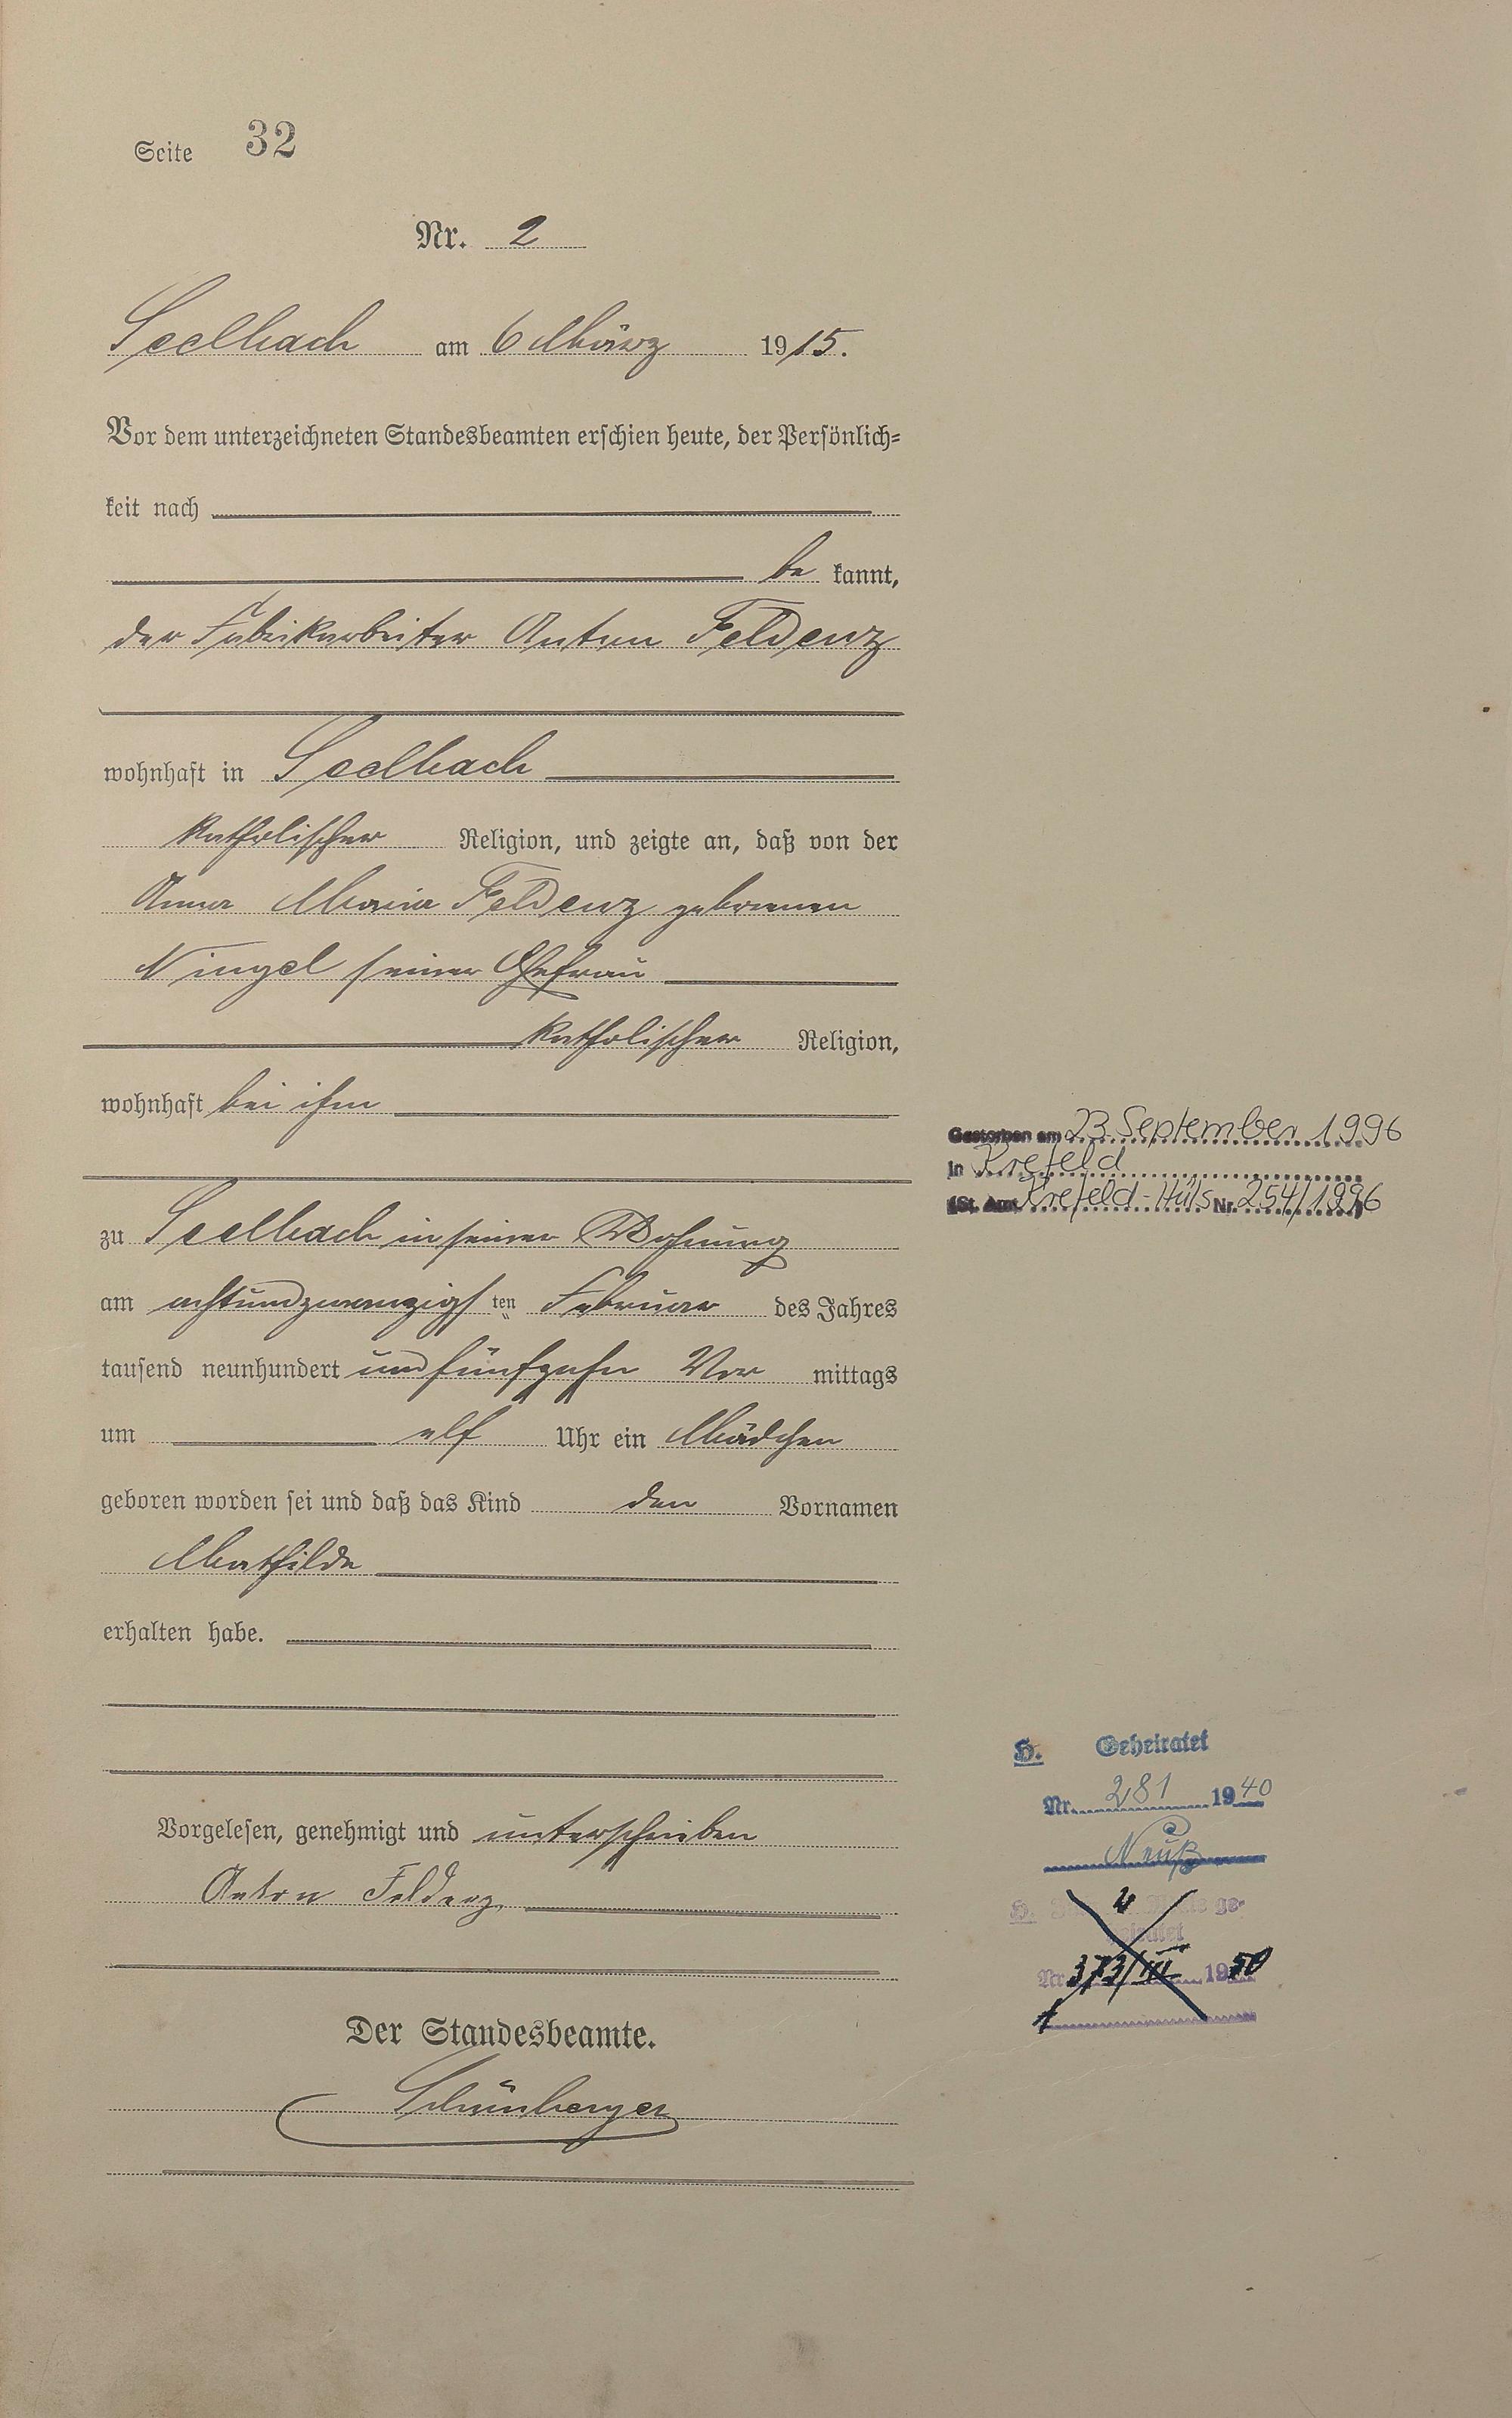 Seite 32
Nr. 2
Seelbach am 6 März 1915.
Vor dem unterzeichneten Standesbeamten erschien heute, der Persönlich=
keit nach
be kannt,
der Fabrikarbeiter Anton Feldenz
wohnhaft in Seelbach
katholischer Religion, und zeigte an, daß von der
Anna Maria Feldenz geborenen
Ningel seiner Ehefrau
katholischer Religion,
wohnhaft bei ihm
zu Seelbach in seiner Wohnung
am achtundzwanzigsten Februar des Jahres
tausend neunhundert und fünfzehn Vor mittags
um elf Uhr ein Mädchen
geboren worden sei und daß das Kind den Vornamen
Mathilde
erhalten habe.
Vorgelesen, genehmigt und unterschrieben
Anton Feldenz
Der Standesbeamte.
Gestorben am 23. September 1996
in Krefeld
(St. Amt Krefeld-Hüls Nr. 254/1996)
H. Geheiratet
Nr. 281 1940
Neuß
H. ge-
Nr. 373/III 1950